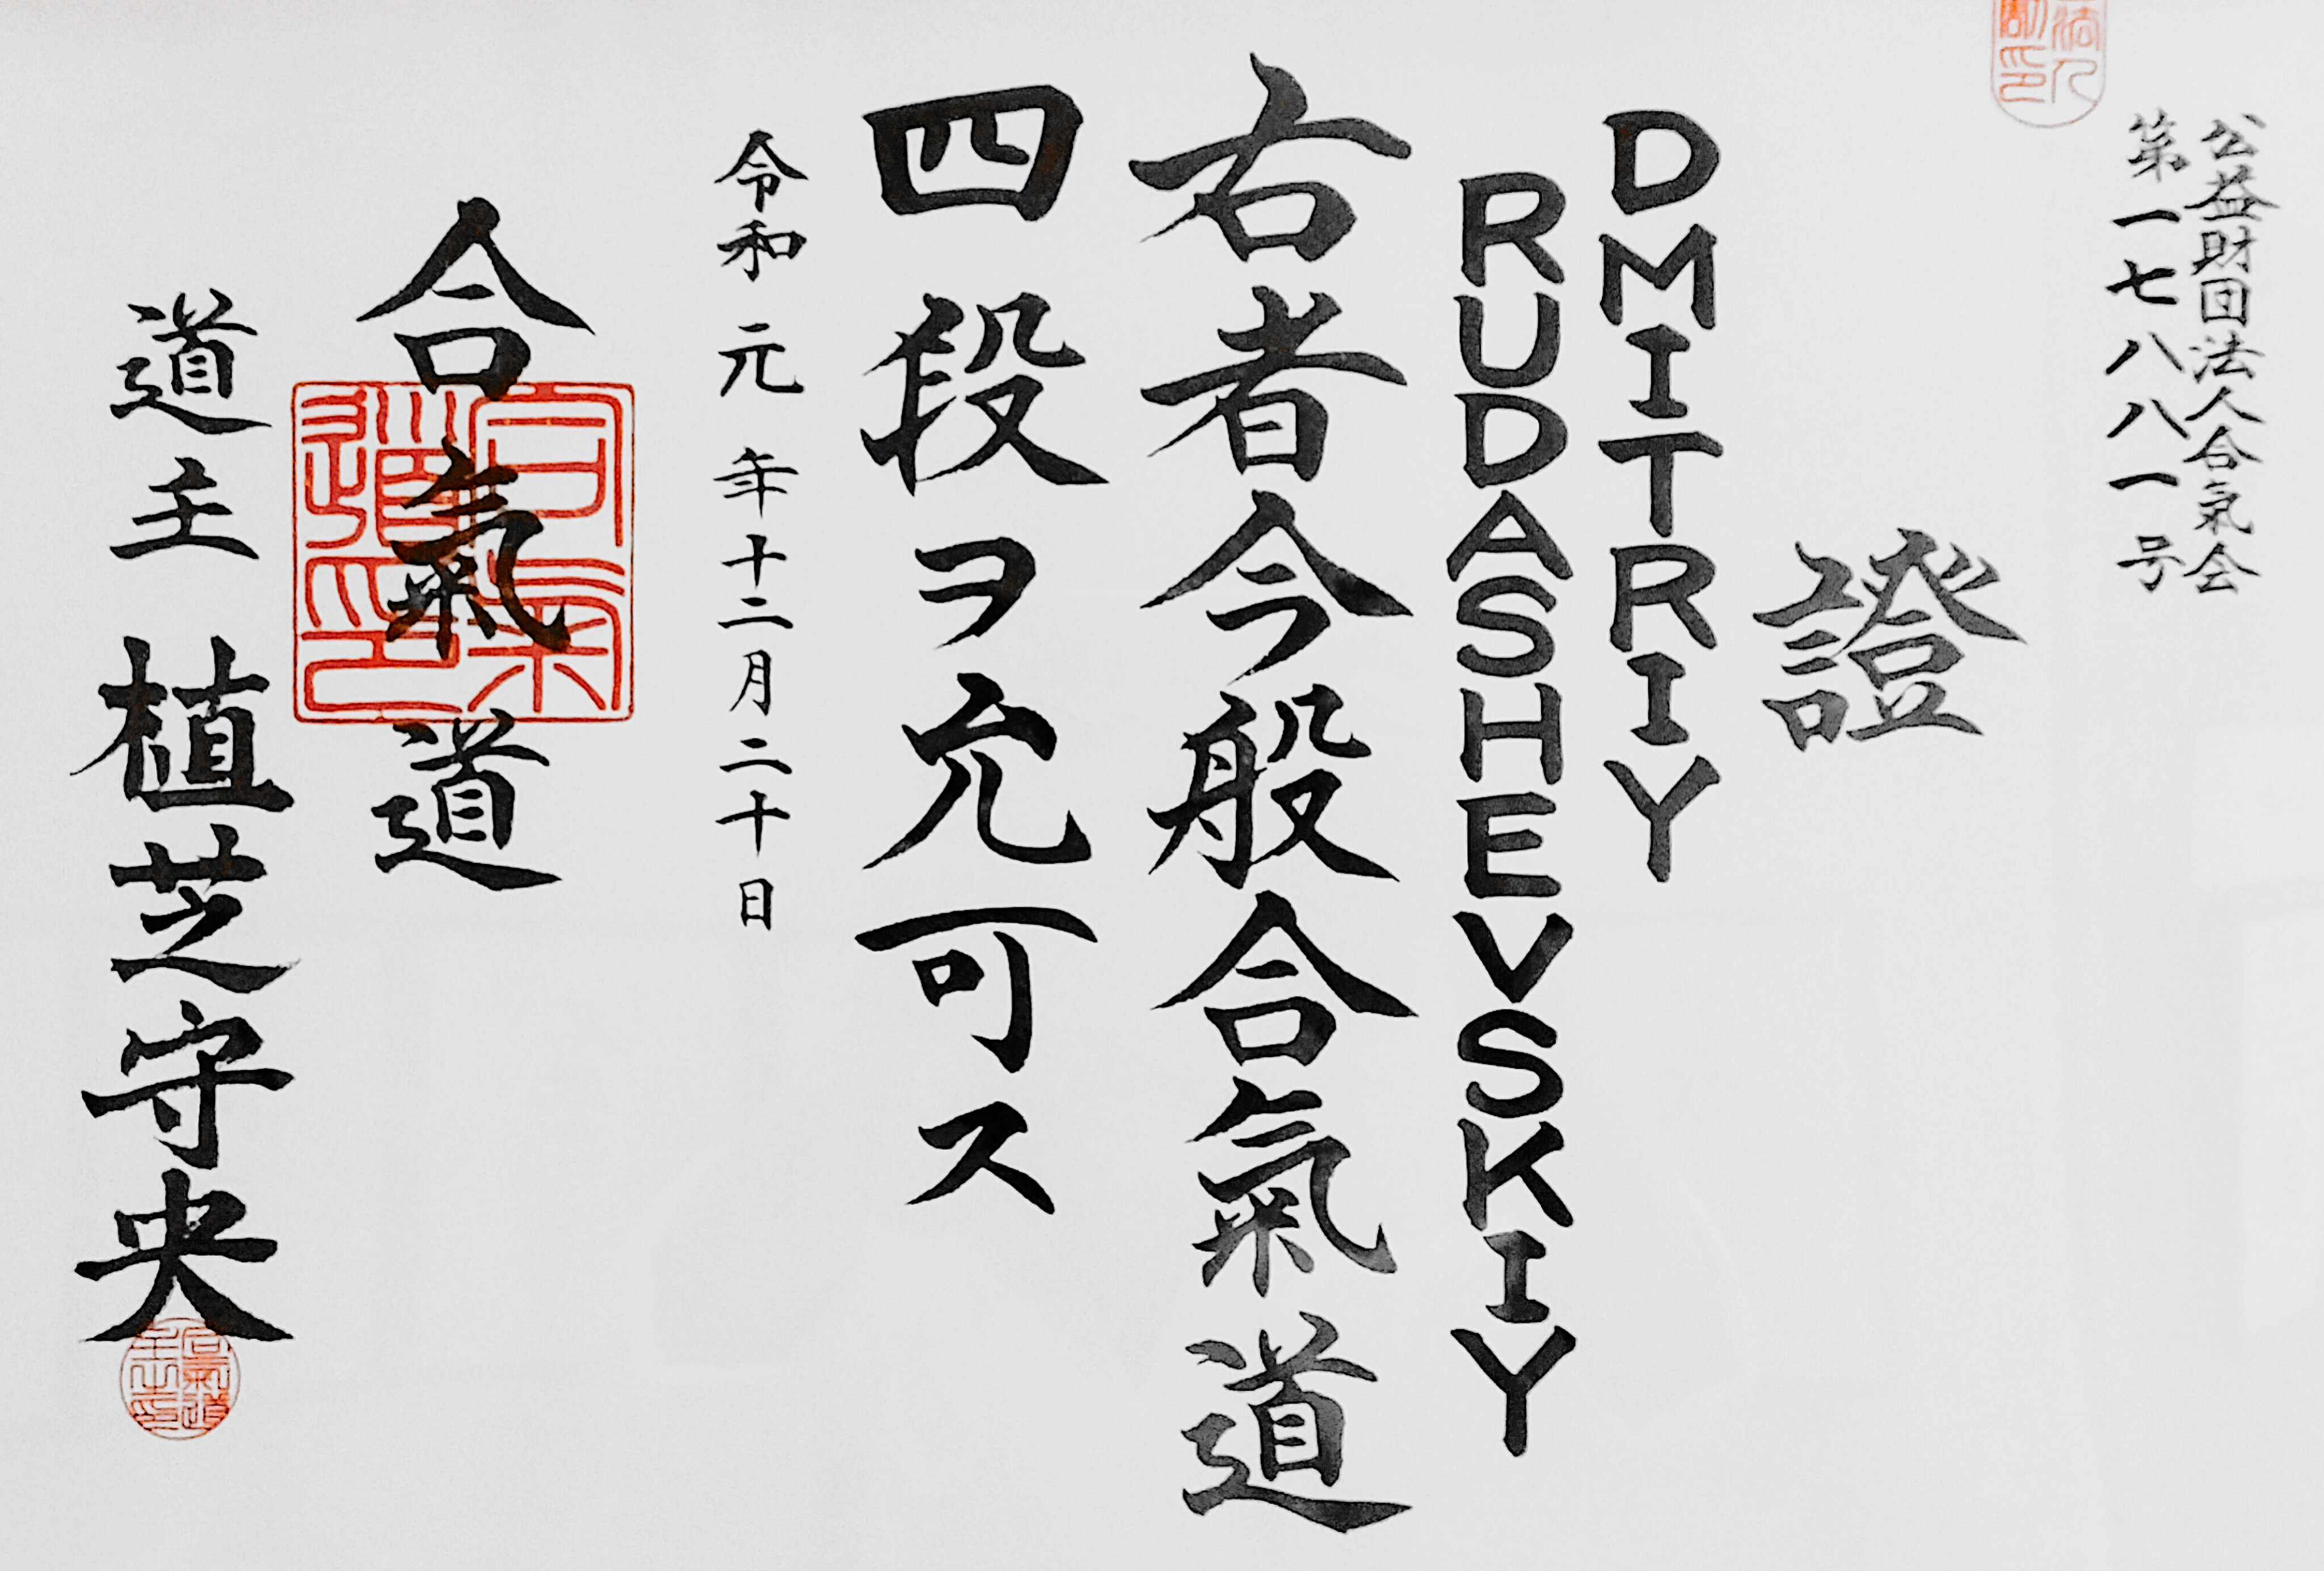 公益財団法人合氣会
第一七八八一号
證
DMITRIY
RUDASHEVSKIY
右者今般合氣道
四段ヲ允可ス
令和元年十二月二十日
合氣道
道主 植芝守央
合氣道印